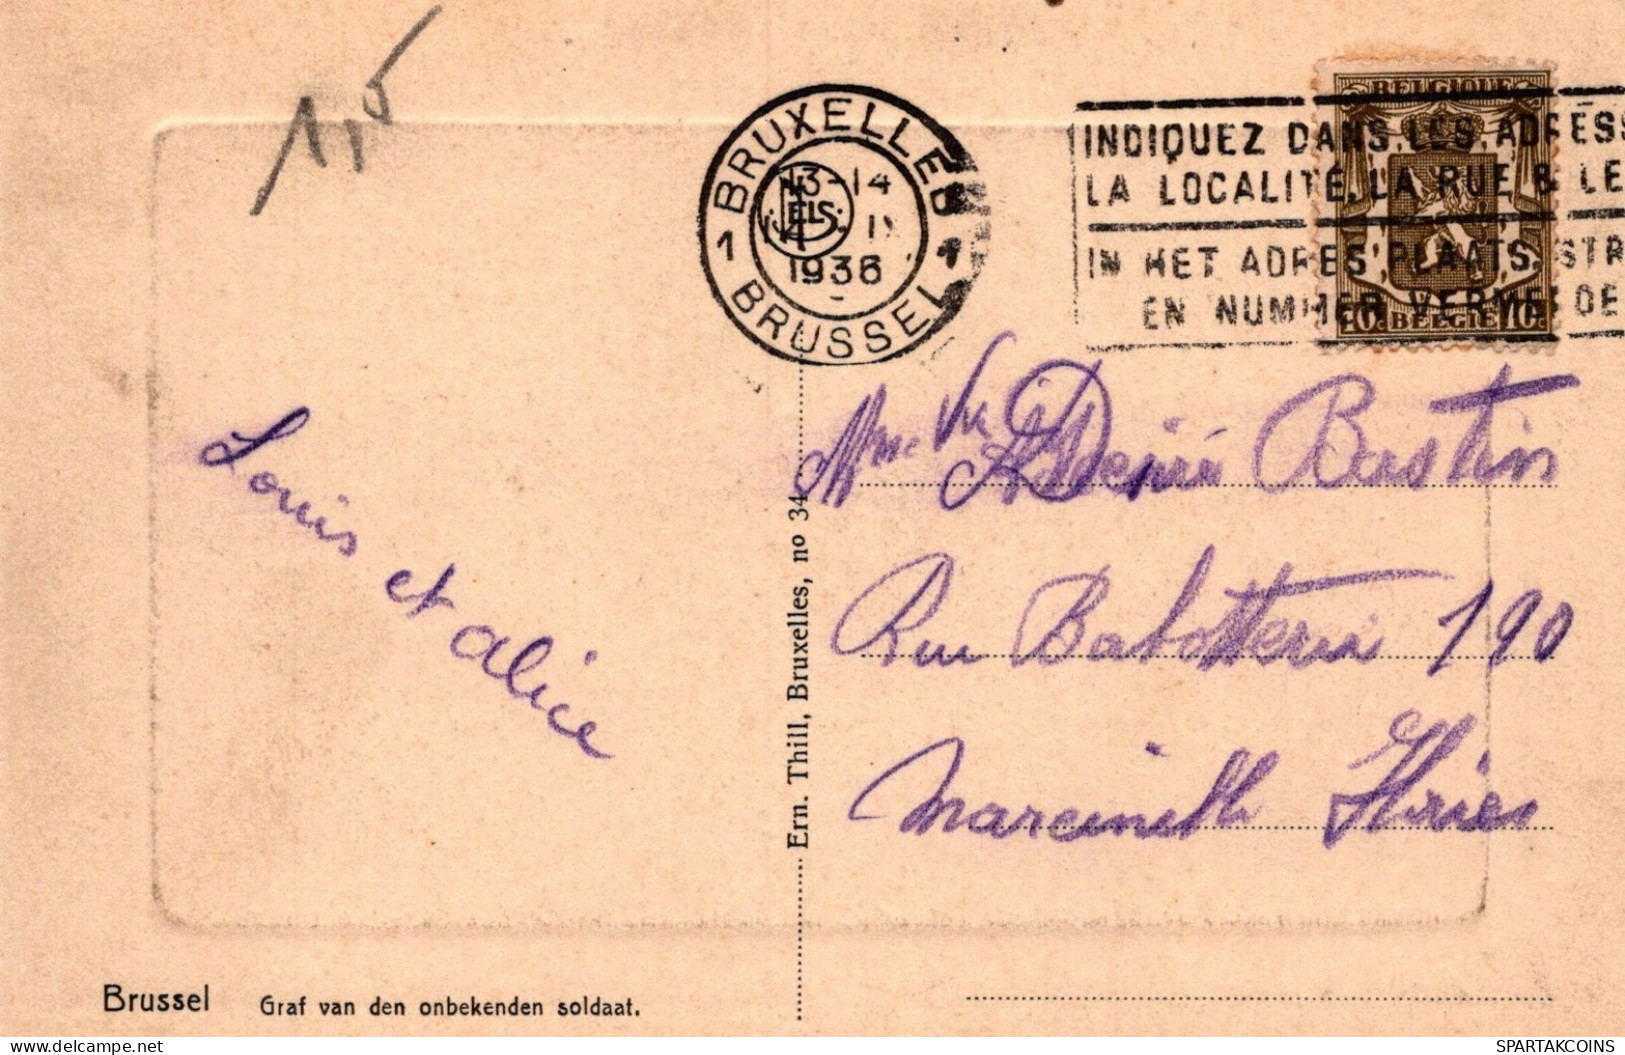 1,5
BRUXELLES
1 1
13-14
IX
1936
BRUSSEL
NELS
INDIQUEZ DANS LES ADRESS
LA LOCALITÉ, LA RUE & LE
IN HET ADRES PLAATS, STR
EN NUMMER VERME DE
BELGIQUE
10c BELGIE 10c
Louis
et alice
Mme Vve Désiré Bastin
Rue 190
Marcinelle
Ern. Thill, Bruxelles, no 34
Brussel Graf van den onbekenden soldaat.
delcampe.net
SPARTAKCOINS